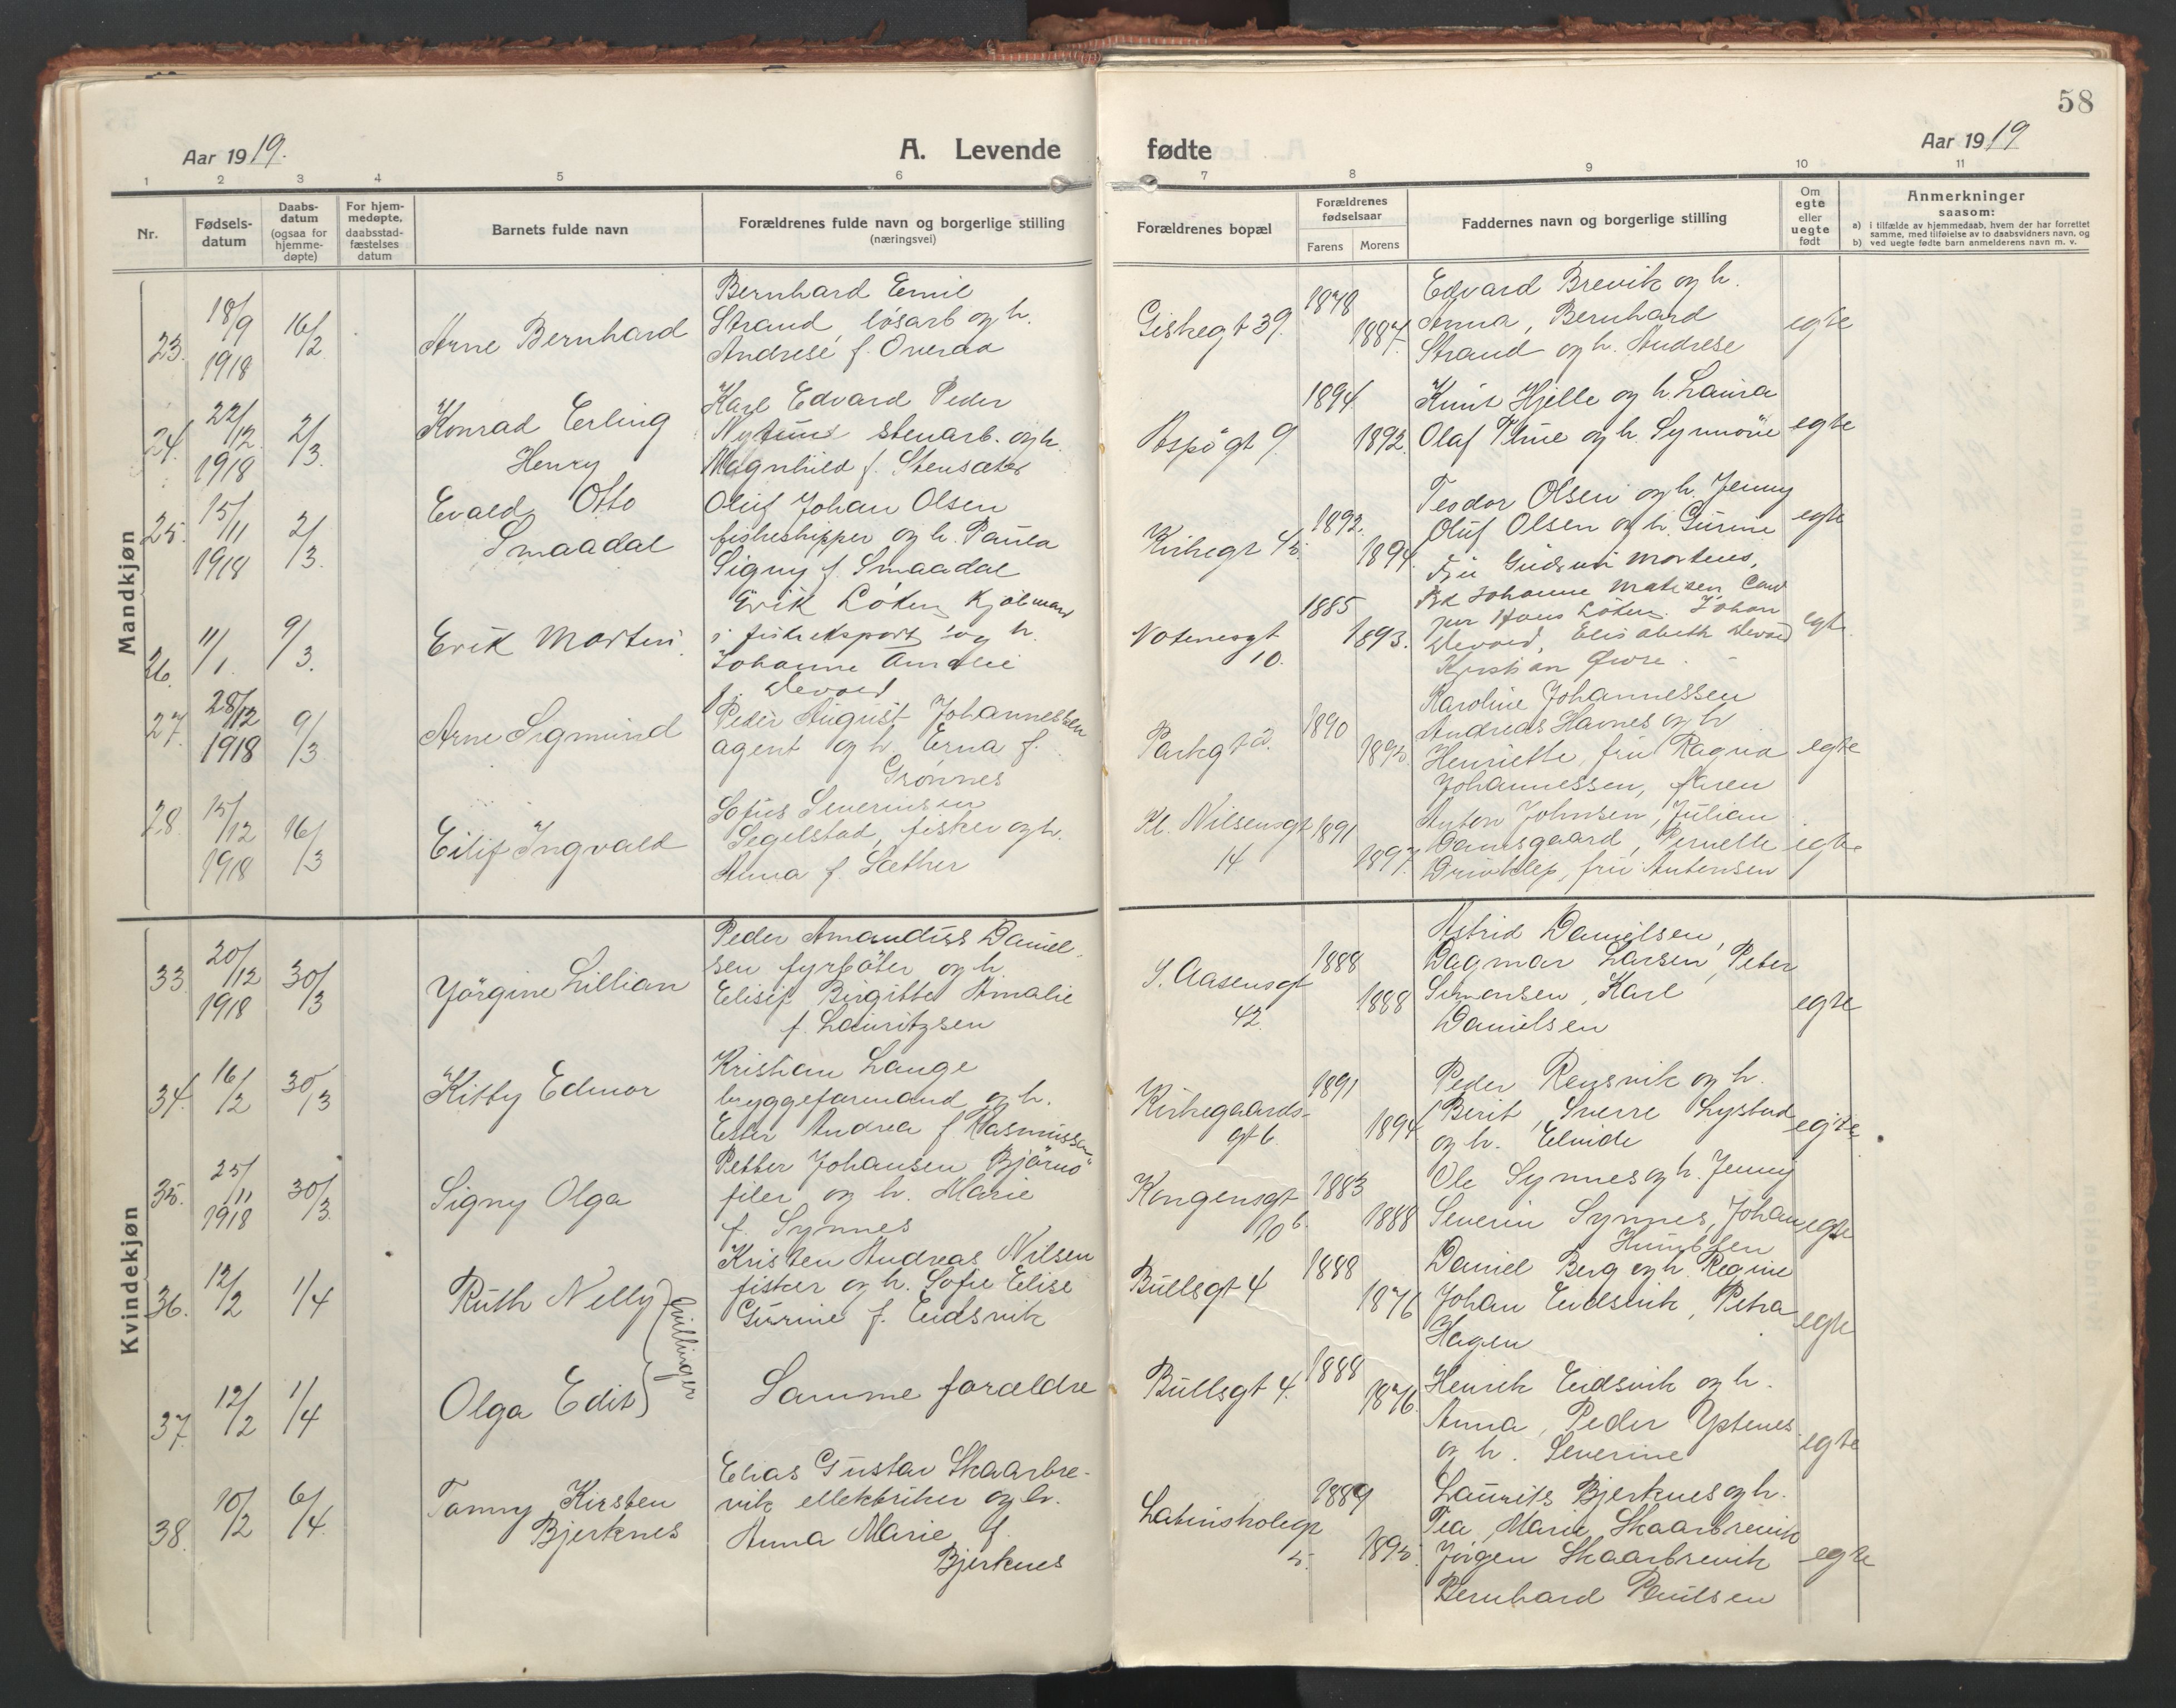 58
Aar 1919.
A. Levende fødte
Aar 1919
1 2 3 4 5 6 7 8 9 10 11
Nr.
Fødsels-
datum
Daabs-
datum
(ogsaa for
hjemme-
døpte)
For hjem-
medøpte,
daabsstad-
fæstelses
datum
Barnets fulde navn
Forældrenes fulde navn og borgerlige stilling
(næringsvei)
Forældrenes bopæl
Forældrenes
fødselsaar
Farens Morens
Faddernes navn og borgerlige stilling
Om
egte
eller
uegte
født
Anmerkninger
saasom:
a) i tilfælde av hjemmedaab, hvem der har forrettet
samme, med tilføielse av to daabsvidners navn, og
b) ved uegte fødte barn anmelderens navn m. v.
Mandkjøn
23. 18/9 1918 16/2
Arne Bernhard
Bernhard Emil
Strand, løsarb og h.
Andresé f. Overaa
Giskegt 39.
1878
1887.
Edvard Brevik og h.
Anna, Bernhard
Strand og h. Andrese
egte
24. 22/12 1918 2/3.
Konrad Erling
Henry
Karl Edvard Peder
stenarb. og h.
Magnhild f. Stensæter
Aspøgt 9.
1894
1892.
Knut Hjelle og h. Laura
Olaf og h. Synnöve
egte
25. 15/11 1918 2/3.
Evald Otto
Smaadal
Oluf Johan Olsen
fiskeskipper og h. Paula
Signy f. Smaadal
Kirkegt 45.
1892.
1894.
Teodor Olsen og h. Jenny
Oluf Olsen og h. Gurine
egte
26. 11/1. 9/3.
Erik Morten.
Erik Löken Kjöbmand
i fiskeeksport og h.
Johanne Amalie
f. Devold
Notenesgt
10.
1885
1893.
Fru Gudrun Mortens,
Johanne Matisen Cand
jur Hans Löken. Johan
Devold, Elisabeth Devold
Kristian Øwre.
egte
27. 28/12 1918 9/3
Arne Sigmund
Peder August Johannessen
agent og h. Erna f.
Grønnes
Parkgt 2.
1890
1895.
Karoline Johannessen
Andreas Havnes og h
Henriette, fru Ragna
Johannessen, Karen
egte
28. 15/12 1918 16/3
Eilif Ingvald
Sofus Severinsen
Segelstad, fisker og h.
Anna f. Sæther
Kl. Nilsensgt
14
1891
1897.
Anton Johnsen, Julian
Damsgaard, Pernelle
Drivklep, fru Antonsen
egte
Kvindekjøn
33 20/12 1918 30/3
Yörgine Lillian
Peder Amandus Daniel-
sen fyrböter og h.
Elisif Birgitte Amalie
f. Lauritzsen
I. Aasensgt
42.
1888
1888
Astrid Danielsen,
Dagmar Larsen, Peter
Simonsen, Karl
Danielsen
egte
34. 16/2 30/3
Kitty Edmor
Kristian Lange
byggeformand og h.
Ester Andrea f. Rasmussen
Kirkegaards-
gt 6.
1891
1894
Peder Rensvik og h.
Berit, Sverre Lystad
og h. Elvide
egte
35. 25/11 1918 30/3.
Signy Olga
Petter Johansen Bjørnö
filer og h. Marie
f. Synnes
Kongensgt
10 b.
1883
1888
Ole Synnes og h. Jenny
Severin Synnes, Johan
Knudsen
egte
36. 12/2 1/4
Ruth Nelly
tvillinger
Kristen Andreas Nilsen
fisker og h. Sofie Elise
Gurine f. Eidsvik
Bullsgt 4
1888
1876
Daniel Berg og h. Regine
Johan Eidsvik, Petra
Hagen
egte
37. 12/2 1/4
Olga Edit
Samme forældre
Bullsgt 4.
1888
1876.
Henrik Eidsvik og h.
Anna, Peder Yptenes
og h. Severine
egte
38. 10/2 6/4.
Tanny Kirsten
Bjerknes
Elias Gustav Skaarbre-
vik ellektriker og h.
Anna Marie f.
Bjerknes
Latinskolegt
5.
1889
1895.
Laurits Bjerknes og h.
Tea, Marie Skaarbrevik
Jörgen Skaarbrevik
Bernhard Paulsen
egte